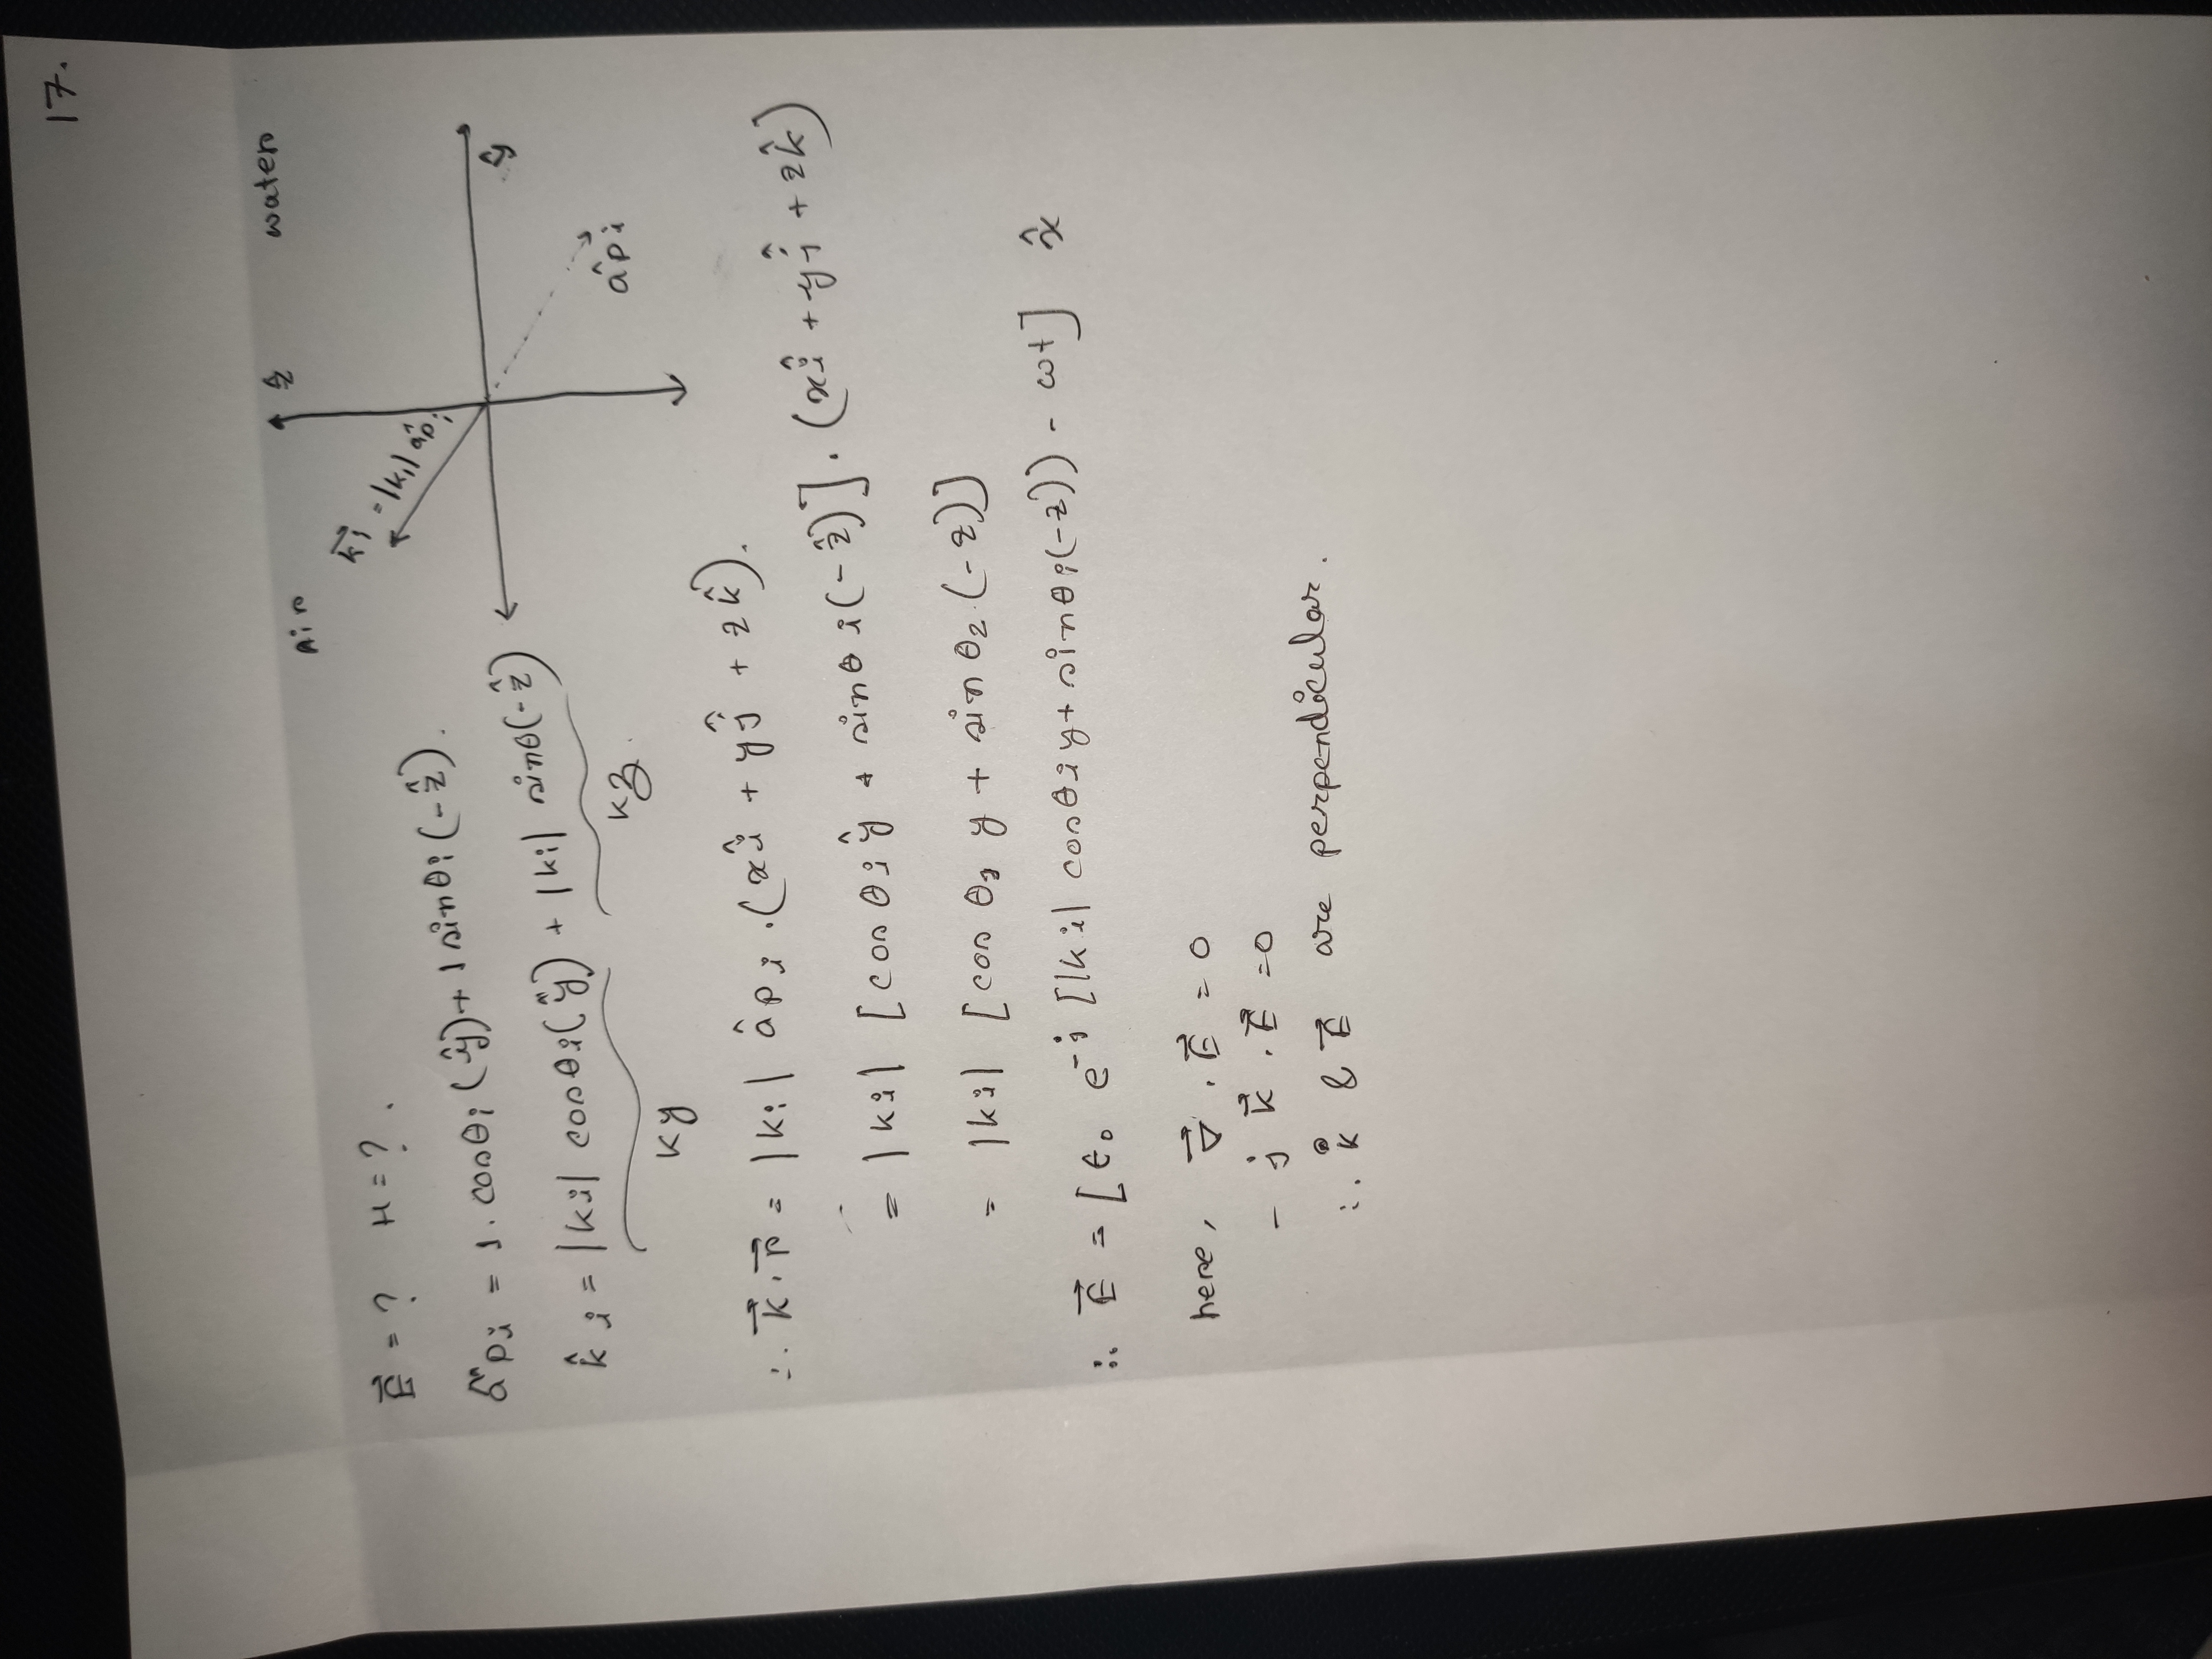 17.
Air
ẑ
water
k⃗i = |ki| âpi
ŷ
âpi
E⃗ = ? H = ? .
âpi = 1. cosθi (ŷ) + 1 sinθi (-ẑ).
k̂i = |ki| cosθi (ŷ) + |ki| sinθ (-ẑ)
ky kz.
∴ k⃗ . r⃗ = |ki| âpi . (xî + yĵ + zk̂).
= |ki| [cosθi ŷ + sinθi (-ẑ)] . (xî + yĵ + zk̂)
= |ki| [cosθ1 y + sinθ2 (-z)]
∴ E⃗ = [E0 e-j [|ki| cosθi y + sinθi (-z)) - ωt] x̂
here, ∇⃗ . E⃗ = 0
- j k⃗ . E⃗ = 0
∴ k & E⃗ are perpendicular.